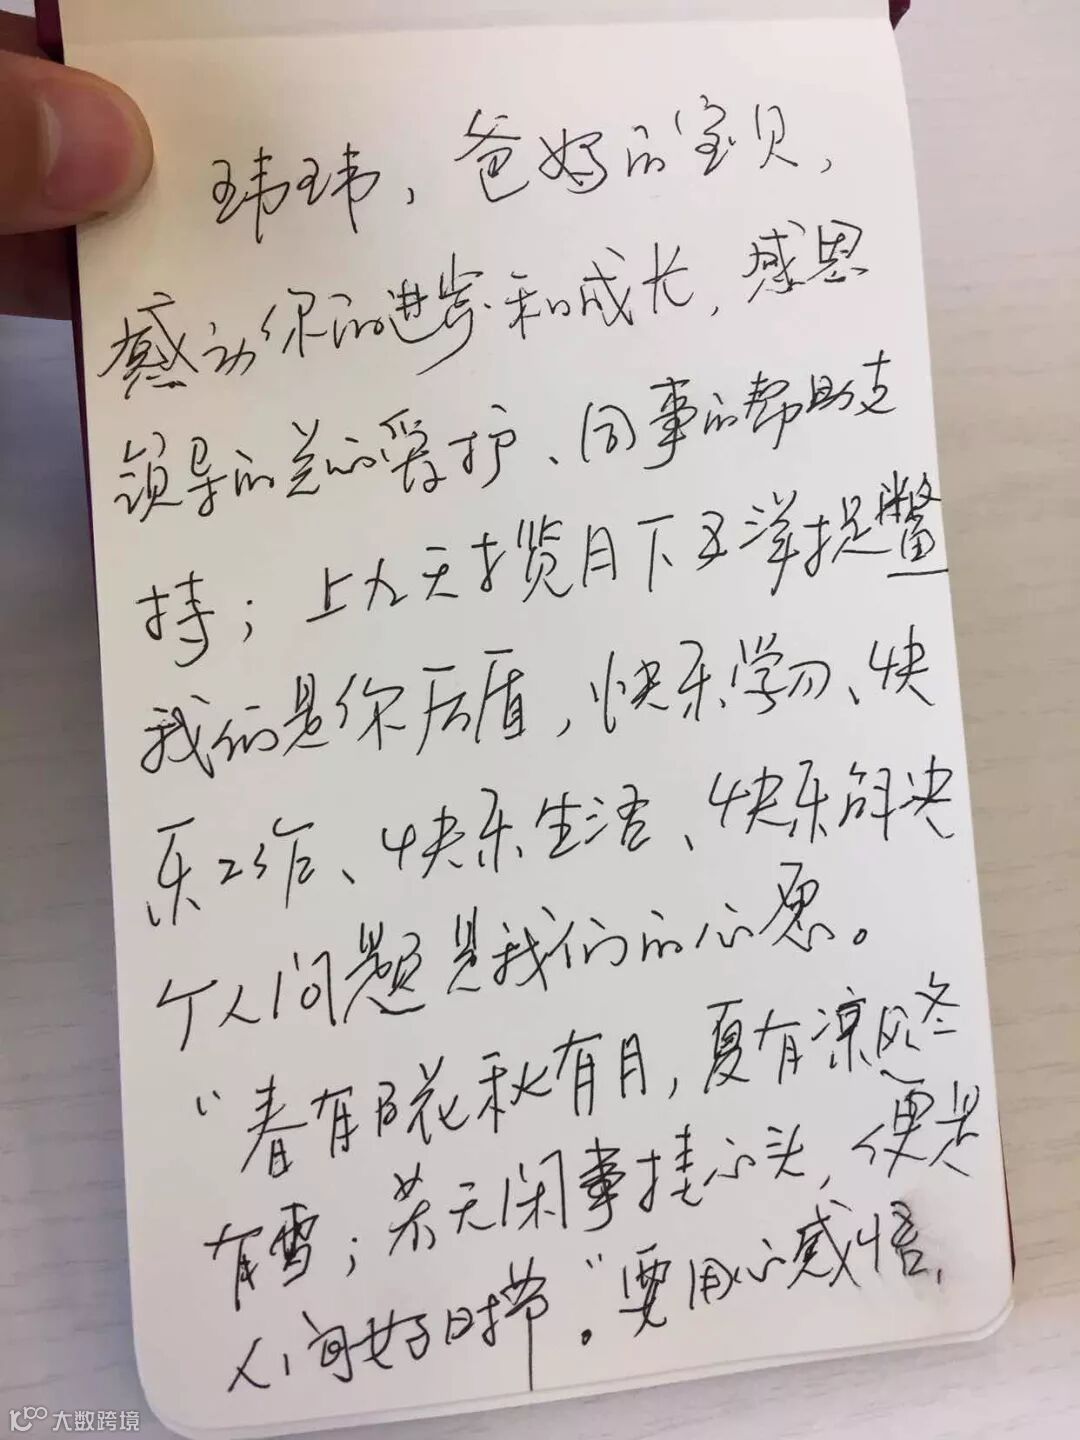 玮玮，爸妈的宝贝，
感动你的进步和成长，感恩
领导的关心爱护、同事的帮助支
持；上九天揽月下五洋捉鳖
我们是你后盾，快乐学习、快
乐工作、快乐生活、快乐解决
个人问题是我们的心愿。
“春有百花秋有月，夏有凉风冬
有雪；若无闲事挂心头，便是
人间好时节。”要用心感悟，
大数跨境